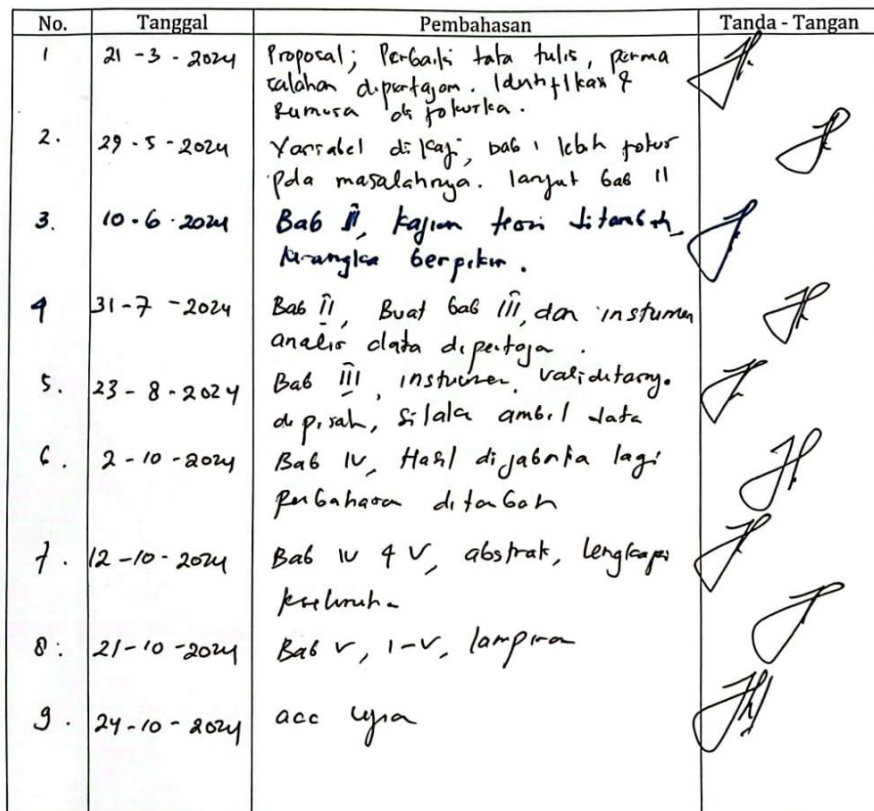 No. Tanggal Pembahasan Tanda - Tangan
1 21 - 3 - 2024 Proposal; Perbaiki tata tulis, perma
salahan dipertajam. Identifikasi &
2. 29 - 5 - 2024 Variabel dikaji, bab 1 lebih fokus
pda masalahnya. lanjut bab II
3. 10 - 6 - 2024 Bab II, kajian teori ditambah,
kerangka berpikir.
4 31 - 7 - 2024 Bab II, Buat bab III, dan instumen
analis data
5. 23 - 8 - 2024 Bab III, instumen, validitasny.
dipisah, silala ambil data
6. 2 - 10 - 2024 Bab IV, Hasil lagi
ditambah
7. 12 - 10 - 2024 Bab IV & V, abstrak, lengkapi
8. 21 - 10 - 2024 Bab V, I - V, lampiran
9. 24 - 10 - 2024 acc